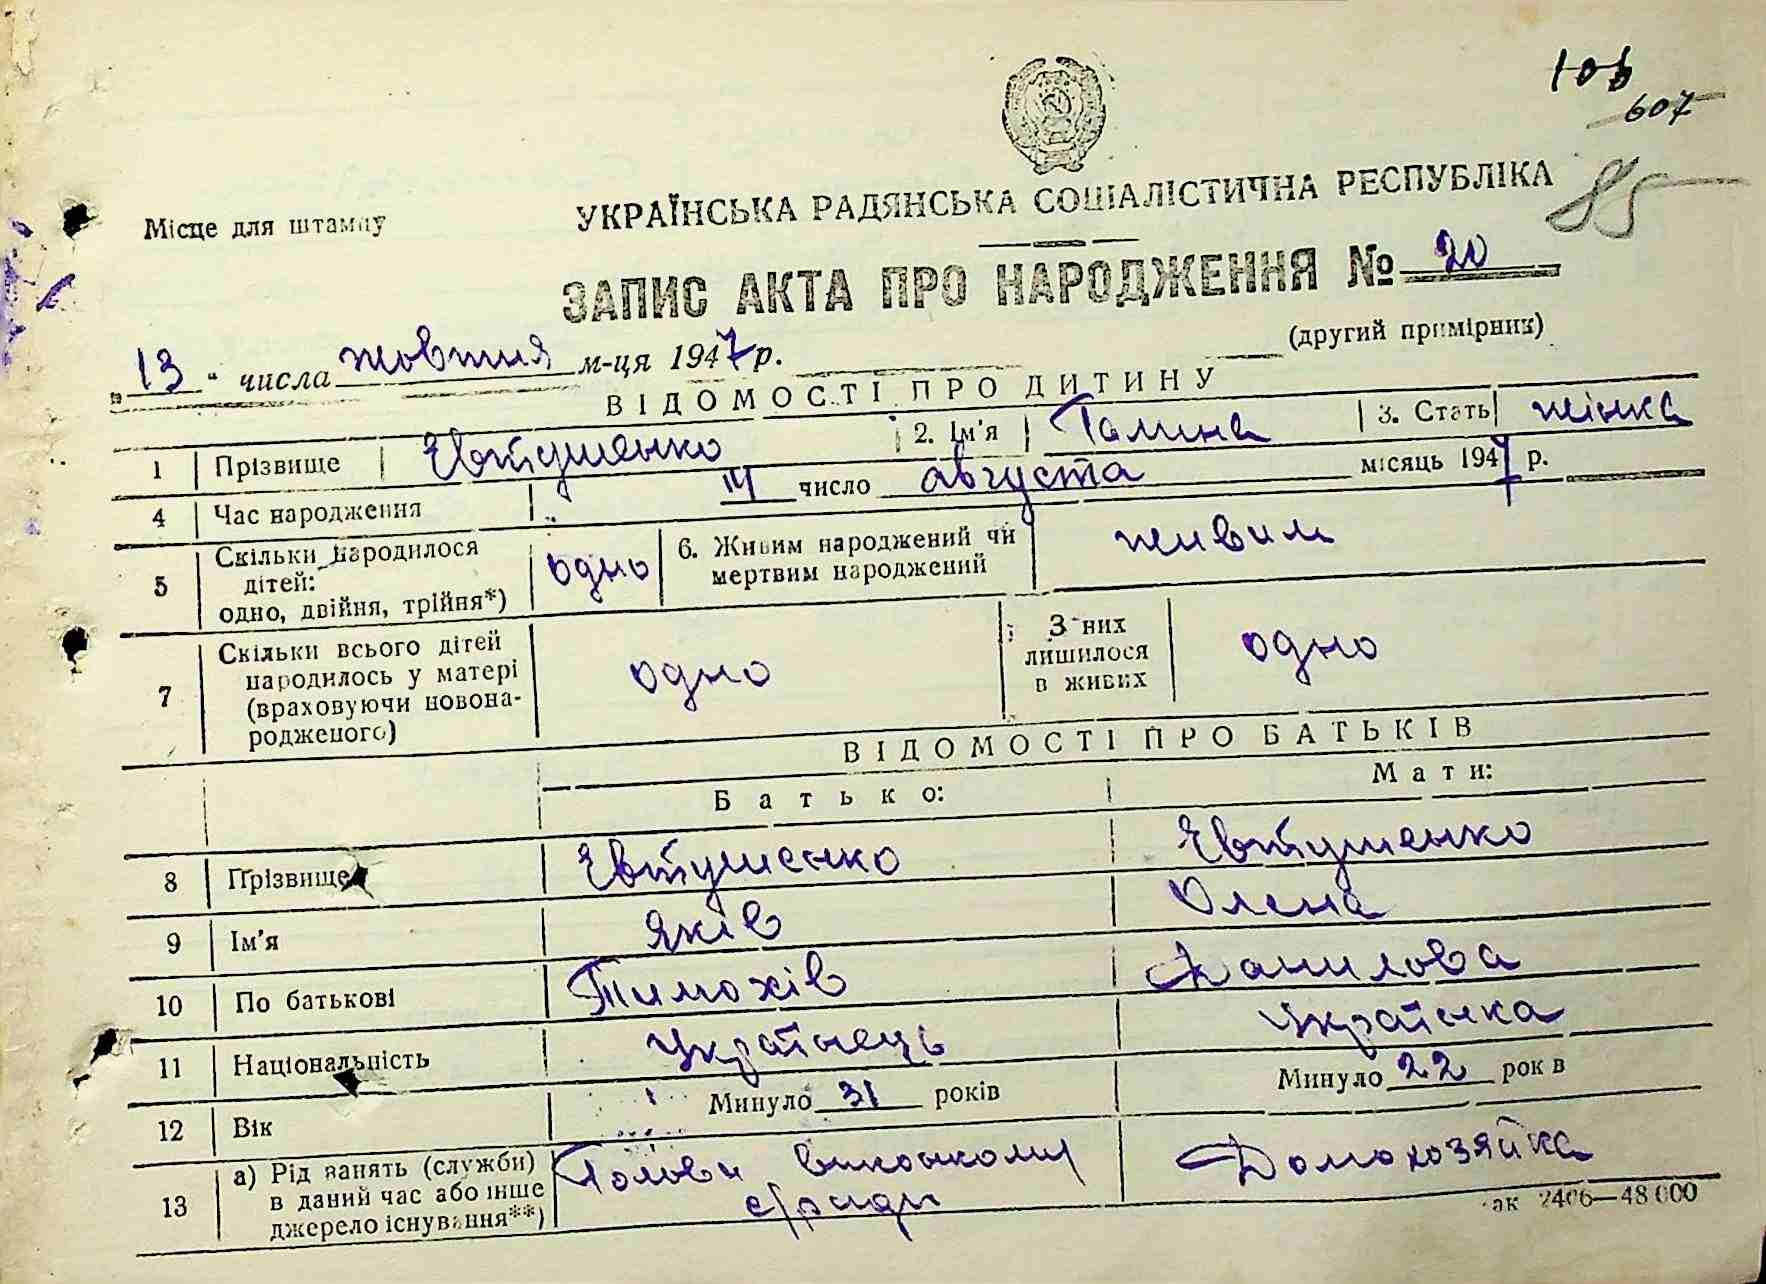 106
607
85
Місце для штампу
УКРАЇНСЬКА РАДЯНСЬКА СОЦІАЛІСТИЧНА РЕСПУБЛІКА
ЗАПИС АКТА ПРО НАРОДЖЕННЯ № 20
(другий примірник)
„13" числа жовтня м-ця 1947 р.
ВІДОМОСТІ ПРО ДИТИНУ
1 Прізвище Євтушенко 2. Ім'я Галина 3. Стать жінка
4 Час народження 14 число августа місяць 1947 р.
5 Скільки народилося дітей: одно, двійня, трійня*) одно 6. Живим народжений чи мертвим народжений живим
7 Скільки всього дітей народилось у матері (враховуючи новонародженого) одно З них лишилося в живих одно
ВІДОМОСТІ ПРО БАТЬКІВ
Батько: Мати:
8 Прізвище Євтушенко Євтушенко
9 Ім'я Яків Олена
10 По батькові Тимохів Данилова
11 Національність Українець Українка
12 Вік Минуло 31 років Минуло 22 рок в
13 а) Рід занять (служби) в даний час або інше джерело існування**) Голова виконкому с/ради Домохозяйка
ак 2406—48 000